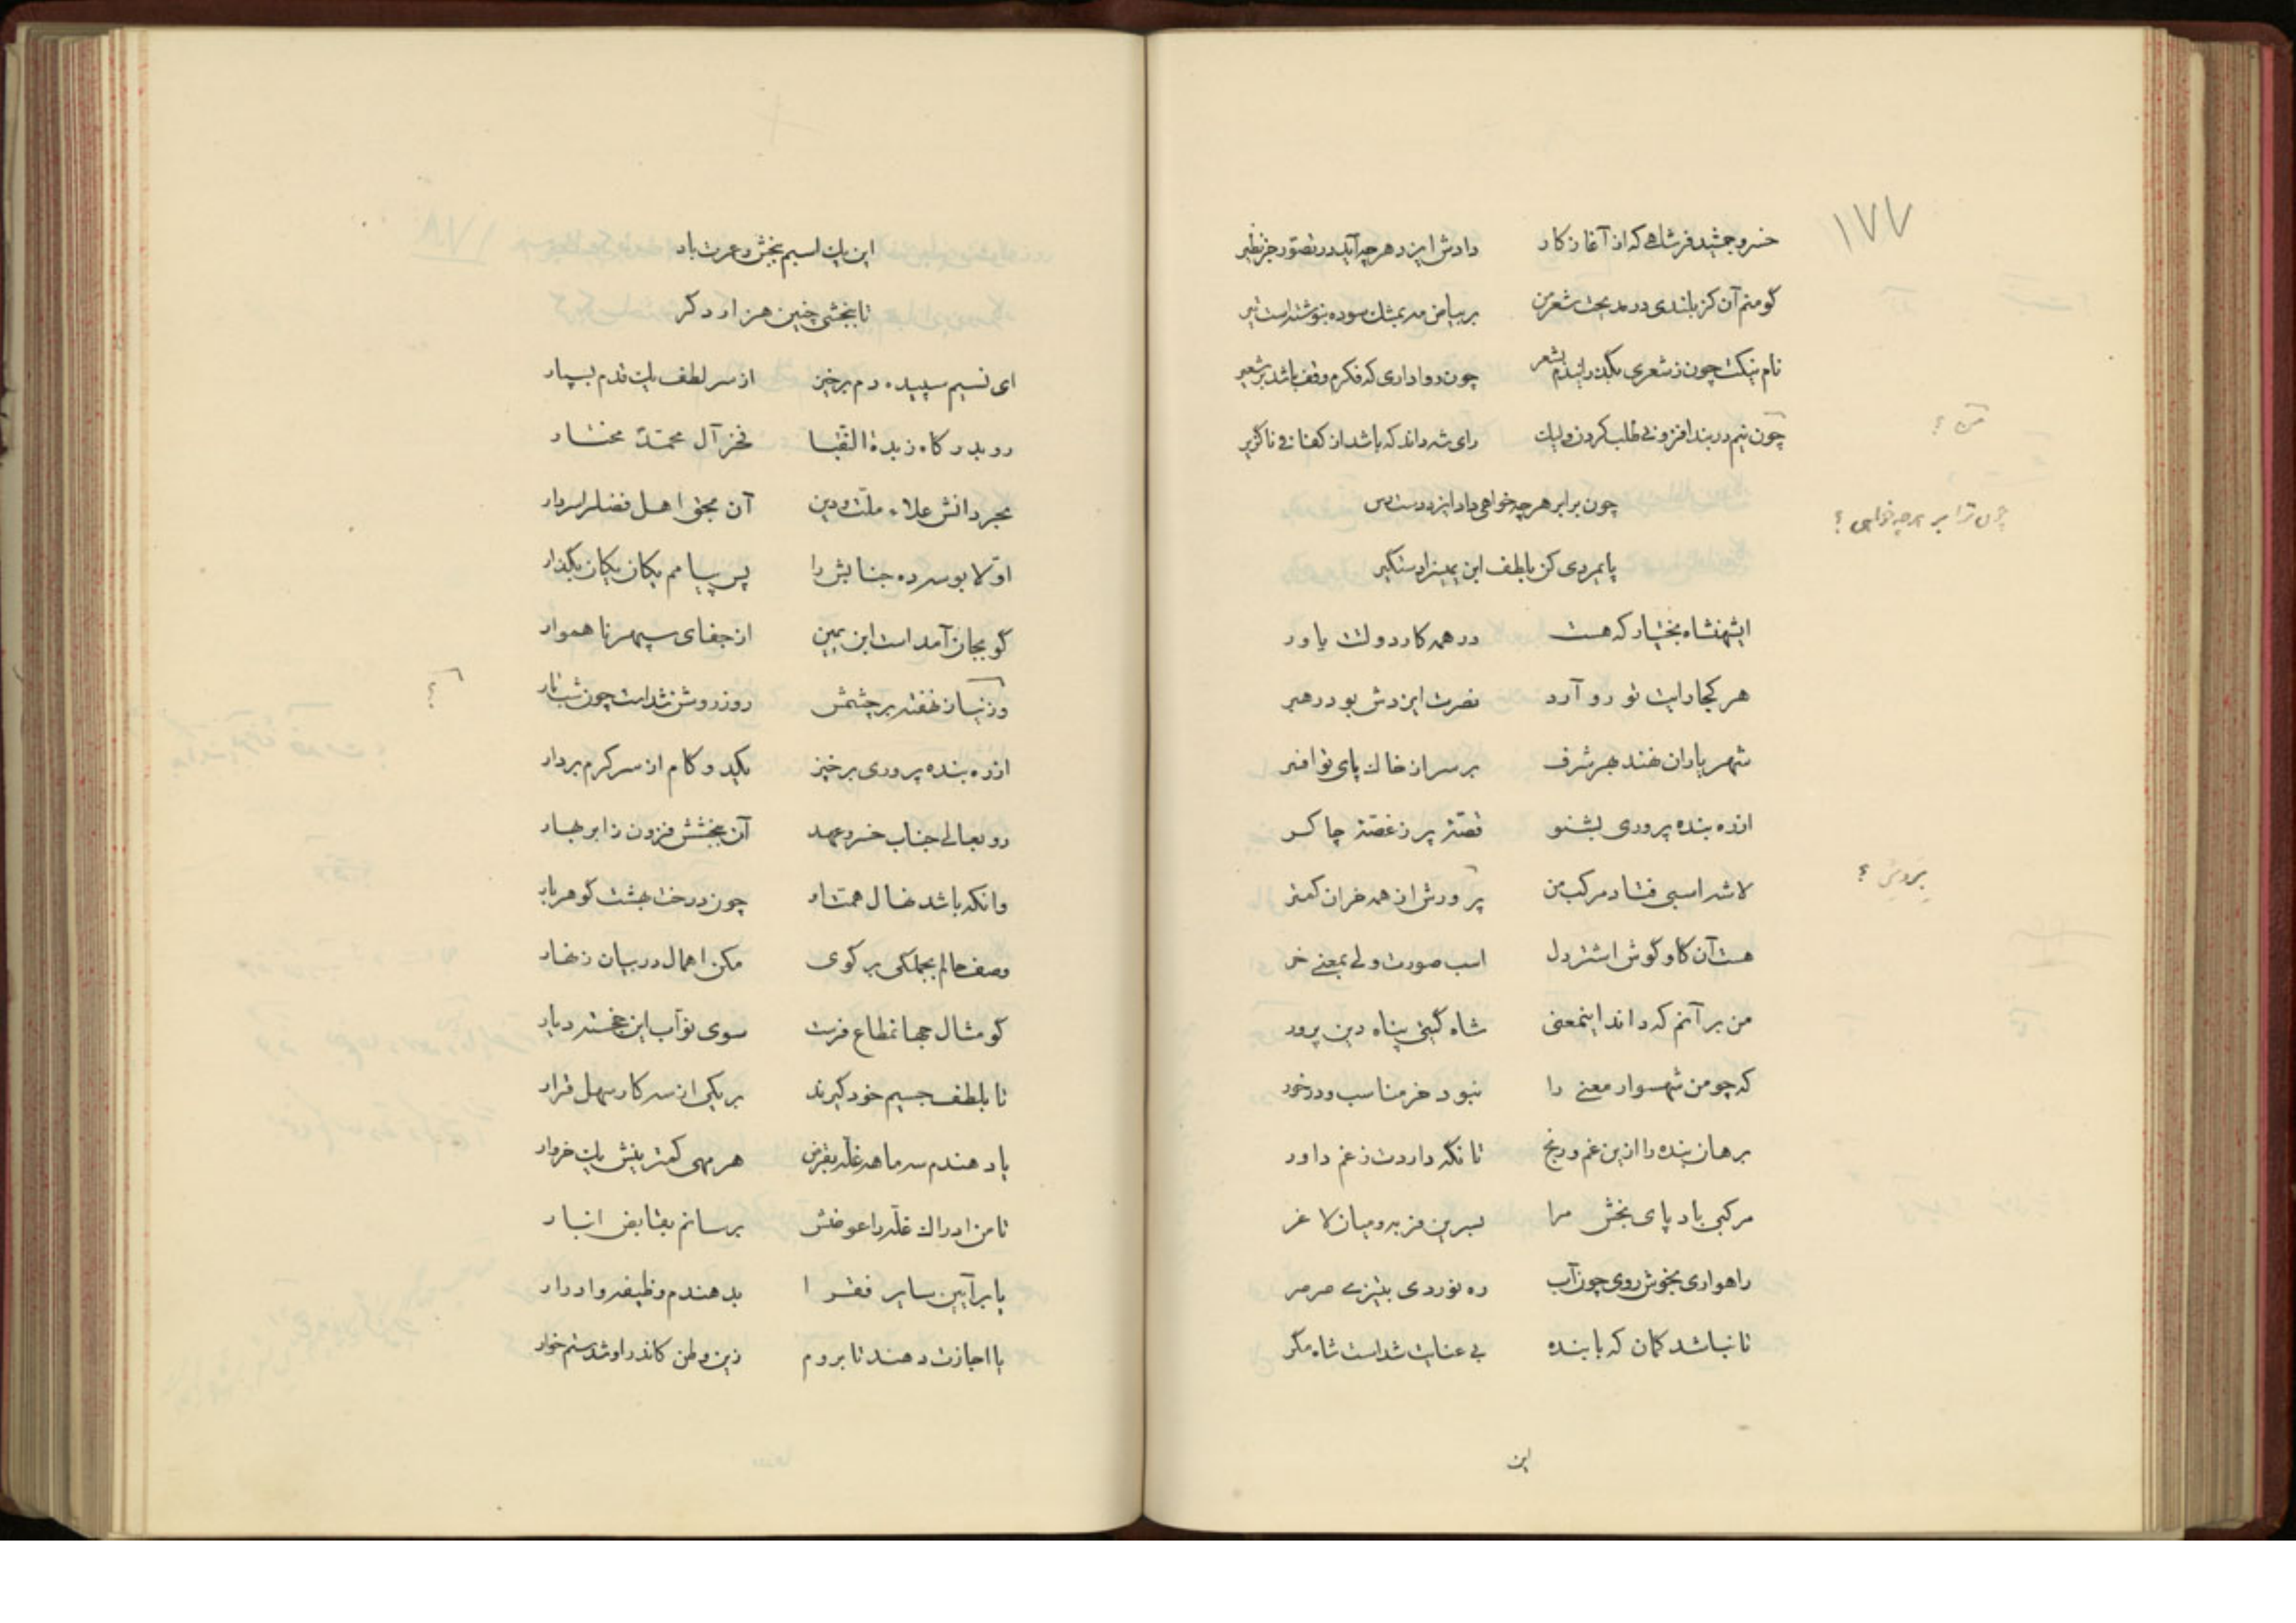 ۱۷۷
خسرو جمشید فر شاهی که از آغاز کار دادش ایزد هر چه آید در تصور جز نظیر
گو منم آن کز بلندی در مدیحت شعر من بر بیاض مدیحتت سوده بنوشتست تیر
نام نیکت چون ز شعری بگذرانیدم بشعر چون رواداری که فکرم وقف باشد بر شعیر
چون نیم در بند افزونی طلب کردن ولیک رای شه داند که باشد از کفافی ناگزیر
من ؟
چون برابر هر چه خواهی داد ایزد دست پس
چون ترا بر هر چه خواهی ؟
پایمردی کن بلطف ابن یمین را دستگیر
ایشهنشاه بختیار که هست در همه کار دولتت یاور
هر کجا رایت تو رو آرد نصرت ایزدش بود رهبر
شهریاران نهند بهر شرف بر سر از خاک پای تو افسر
از ره بنده پروری بشنو قصّهٔ پر ز غصّهٔ چاکر
لاشه اسبی فتاد مرکب من پرورش از همه خران کمتر
هست آن گاو گوش اشتر دل اسب صورت ولی بمعنی خر
من بر آنم که داند اینمعنی شاه گیتی پناه دین پرور
که چو من شهسوار معنی را نبود خر مناسب و درخور
برهان بنده را ازین غم و رنج تا نگه داردت ز غم داور
مرکبی باد پای بخش مرا سرین فربه و میان لاغر
راهواری بخوش روی چون آب ره نوردی بتیزی صرصر
تا نباشد گمان که با بنده بی عنایت شداست شاه مگر
این
این یک اسبم ببخش و عمرت باد
تا ببخشی چنین هزار دگر
ای نسیم سپیده دم برخیز از سر لطف یک قدم بسپار
رو بدرگاه زبدة النّقبا فخر آل محمّد مختار
بحر دانش علاء ملّت و دین آن بحق اهل فضل را سردار
اوّلا بوسه ده جنابش را پس پیامم یکان یکان بگذار
گو بجان آمد است ابن یمین از جفای سپهر ناهموار
روز روشن شداست چون شب تار
؟
از ره بنده پروری برخیز یکدو گام از سر کرم بردار
رو بعالی جناب خسرو عهد آن ببخشش فزون ز ابر بهار
وانکه باشد نهال همت او چون درخت بهشت گوهر بار
وصف حالم بجملگی بر گوی مکن اهمال در بیان زنهار
گو مثال جهانمطاع فرست سوی نوّاب این خجسته دیار
تا بلطف جسیم خود گیرند بر یکی از سه کار سهل قرار
یا دهندم سه ماهه غلّه بقرض هر مهی کمترینش یک خروار
تا من ادراک غلّه را عوضش برسانم بقابض انبار
یا بر آیین سایر فقرا بدهندم وظیفه و ادرار
یا اجازت دهند تا بروم زین وطن کاندر او شدستم خوار